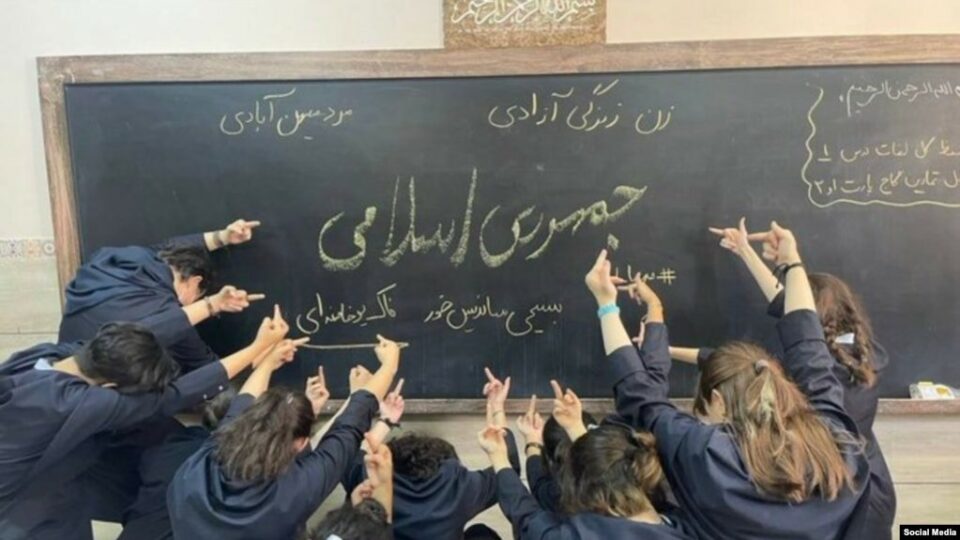 بسم الله الرحمن الرحیم
زن زندگی آزادی
مرد میهن آبادی
الله الرحمن الرحیم
کل لغات درس ۱
تمارین گاج پارت ۱و۲
جمهوری اسلامی
#
بسیجی ساندیس خور
فاک یو خامنه‌ای
Social Media